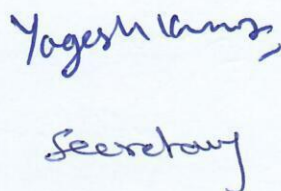 Yogesh Kumar
Secretary